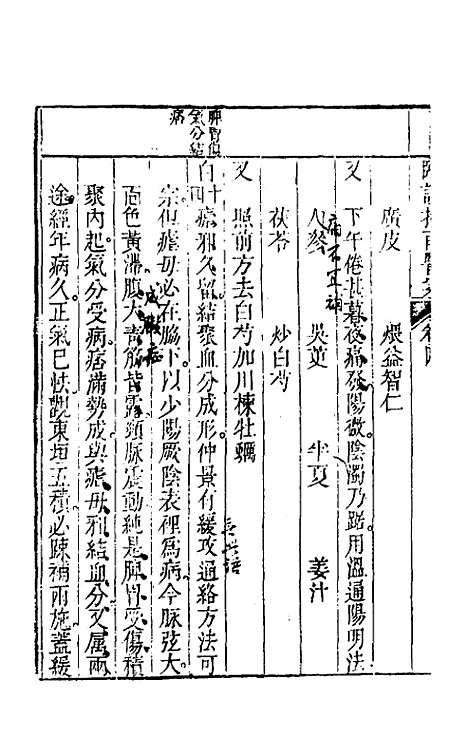 臨證指南醫案 卷四
廣皮 煨益智仁
又 下午倦甚暮夜痛發陽微陰濁乃踞用溫通陽明法
人參 吳萸 半夏 姜汁
茯苓 炒白芍
又 照前方去白芍加川楝牡蠣
脾胃俱
氣分結
痞
白十四 瘧邪久留結聚血分成形仲景有緩攻通絡方法可
宗但瘧母必在脇下以少陽厥陰表裡為病今脉弦大
面色黃滯腹大青筋皆露頸脉震動純是脾胃受傷積
聚內起氣分受病痞滿勢成與瘧母邪結血分又屬兩
途經年病久正氣已怯觀東垣五積必踈補兩施蓋緩